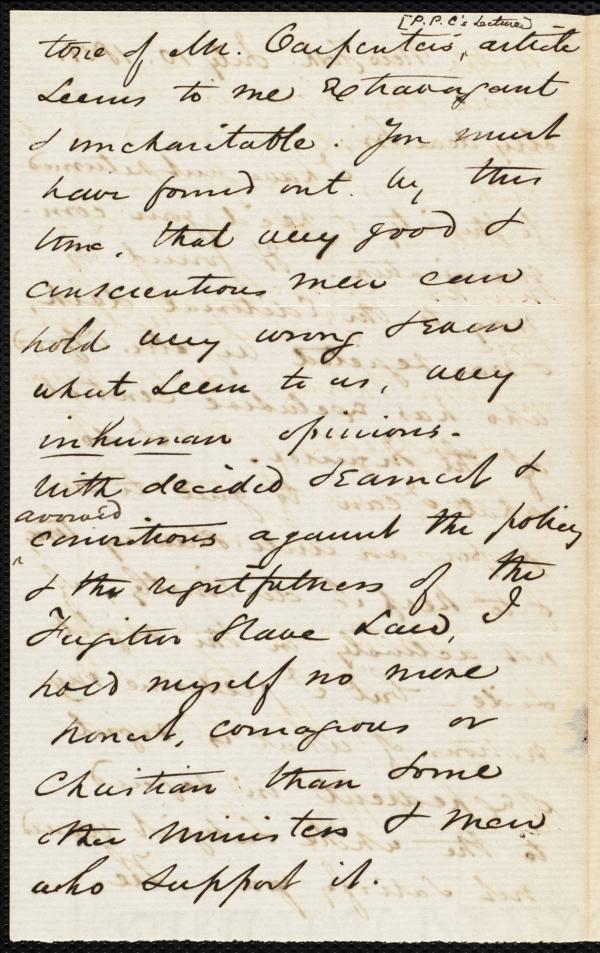 [P.P.C's Lecture]
tone of Mr. Carpenter's, article
seems to me extravagant
& uncharitable. You must
have found out by this
time, that very good &
conscientious men can
hold very wrong & even
what seem to us, very
inhuman opinions.
With decided & earnest &
avowed
convictions against the policy
& the rightfulness of the
Fugitive Slave Law, I
hold myself no more
honest, courageous or
Christian than some
other ministers & men
who support it.